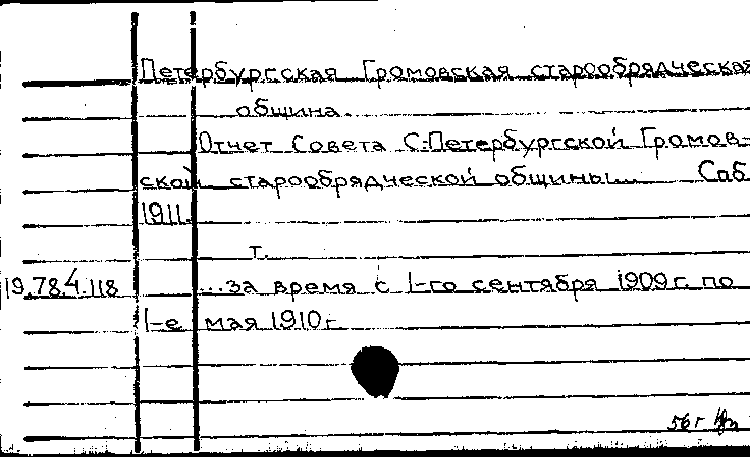 Петербургская Громовская старообрядческая
община.
Отчет Совета С.-Петербургской Громов-
ской старообрядческой общины... Спб
1911.
т.
19.78.4.118 ...за время с 1-го сентября 1909 г. по
1-е мая 1910 г.
56 г